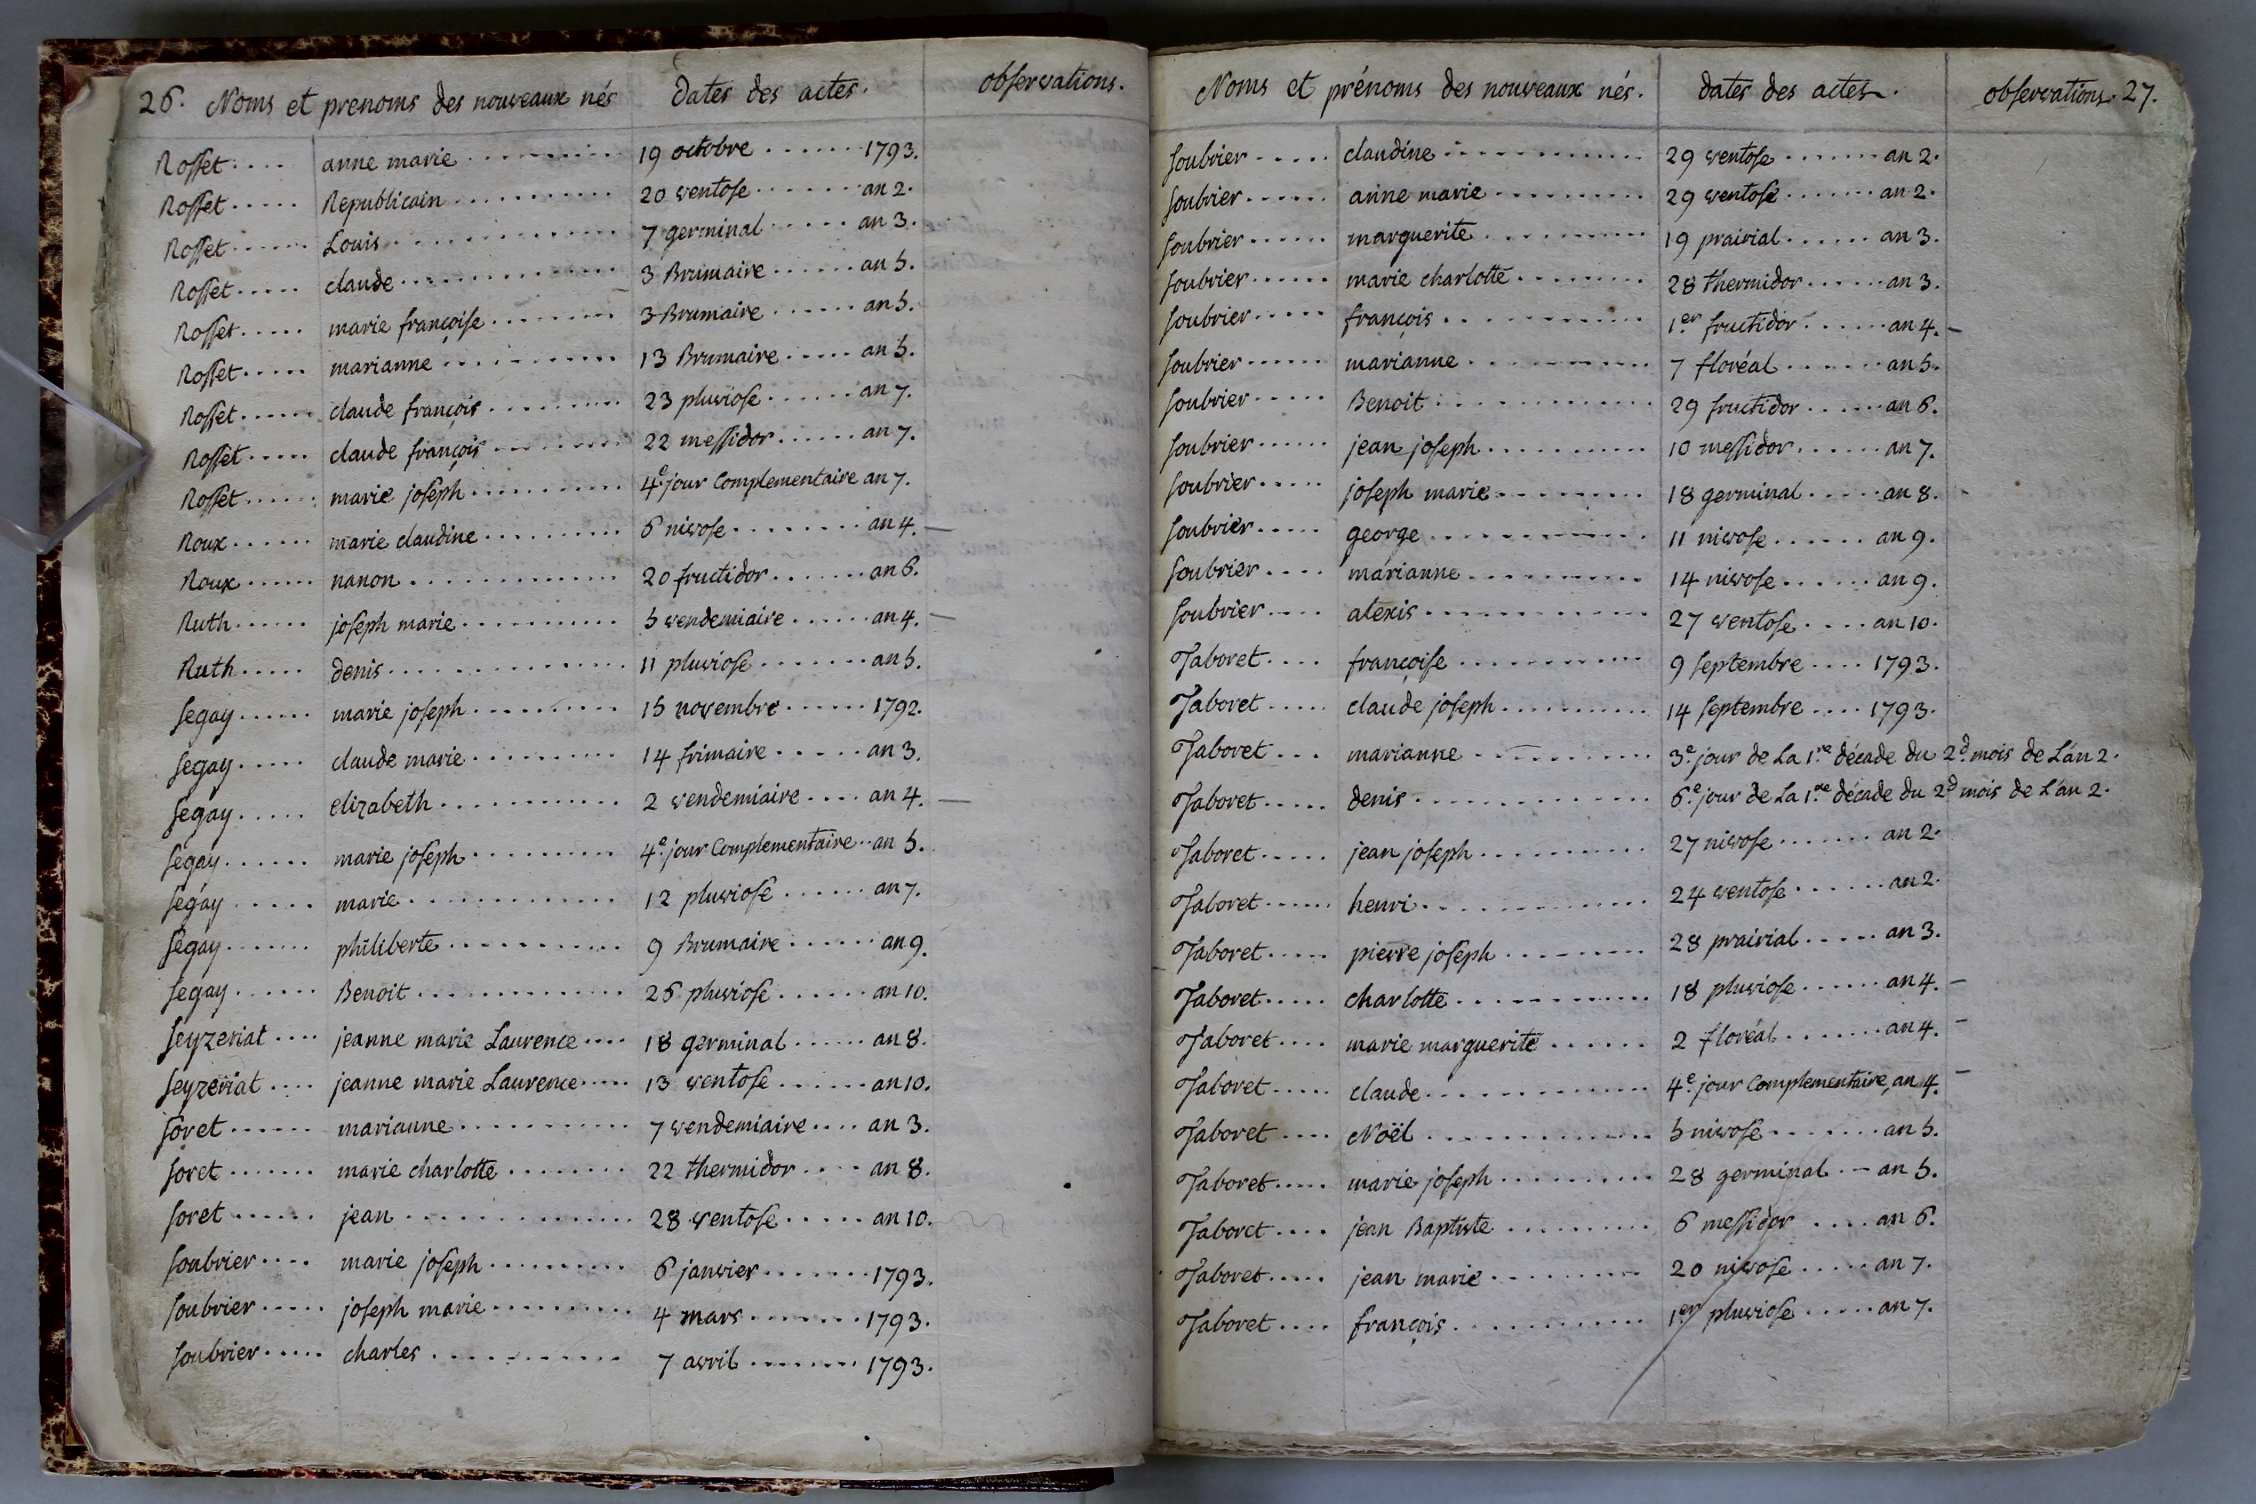 26. Noms et prenoms des nouveaux nés Dates des actes. observations.
Rosset..... anne marie.......... 19 octobre....... 1793.
Rosset..... Republicain.......... 20 ventose....... an 2.
Rosset..... Louis.......... 7 germinal..... an 3.
Rosset..... claude.......... 3 Brumaire...... an 5.
Rosset..... marie françoise........ 3 Brumaire...... an 5.
Rosset..... marianne.......... 13 Brumaire..... an 5.
Rosset..... claude françois......... 23 pluviose...... an 7.
Rosset..... claude françois......... 22 messidor...... an 7.
Rosset..... marie joseph.......... 4e. jour Complementaire an 7.
Roux...... marie claudine.......... 6 nivose........ an 4. —
Roux...... nanon.......... 20 fructidor....... an 6.
Ruth...... joseph marie.......... 5 vendemiaire...... an 4. —
Ruth..... denis.......... 11 pluviose....... an 5.
Segay...... marie joseph......... 15 novembre...... 1792.
Segay..... claude marie......... 14 frimaire..... an 3.
Segay..... elizabeth.......... 2 vendemiaire.... an 4. —
Segay...... marie joseph......... 4e. jour Complementaire.. an 5.
Segay...... marie.......... 12 pluviose...... an 7.
Segay....... philiberte.......... 9 Brumaire...... an 9.
Segay...... Benoit.......... 26 pluviose...... an 10.
Seyzeriat.... jeanne marie Laurence.... 18 germinal...... an 8.
Seyzeriat.... jeanne marie Laurence..... 13 ventose...... an 10.
Soret...... marianne.......... 7 vendemiaire.... an 3.
Soret....... marie charlotte........ 22 thermidor.... an 8.
Soret...... jean.......... 28 ventose..... an 10.
Soubrier.... marie joseph......... 6 janvier....... 1793.
Soubrier..... joseph marie......... 4 mars....... 1793.
Soubrier..... charles.......... 7 avril....... 1793.
Noms et prénoms des nouveaux nés. dates des actes. observations. 27.
Soubrier..... claudine.......... 29 ventose...... an 2.
Soubrier...... anne marie......... 29 ventose...... an 2.
Soubrier...... marguerite......... 19 prairial...... an 3.
Soubrier...... marie charlotte........ 28 thermidor...... an 3.
Soubrier..... françois.......... 1.er fructidor...... an 4. —
Soubrier...... marianne.......... 7 floréal...... an 5.
Soubrier..... Benoit.......... 29 fructidor...... an 6.
Soubrier...... jean joseph.......... 10 messidor...... an 7.
Soubrier..... joseph marie......... 18 germinal..... an 8.
Soubrier..... george.......... 11 nivose...... an 9.
Soubrier.... marianne.......... 14 nivose...... an 9.
Soubrier.... alexis.......... 27 ventose.... an 10.
Taboret.... françoise.......... 9 Septembre.... 1793.
Taboret..... claude joseph.......... 14 Septembre.... 1793.
Taboret... marianne.......... 3e. jour de La 1.re décade du 2d. mois de L'an 2.
Taboret..... denis.......... 6e. jour de La 1.re décade du 2d. mois de L'an 2.
Taboret..... jean joseph.......... 27 nivose....... an 2.
Taboret...... henri.......... 24 ventose...... an 2.
Taboret..... pierre joseph........ 28 prairial..... an 3.
Taboret..... charlotte.......... 18 pluviose...... an 4. —
Taboret.... marie marguerite...... 2 floréal....... an 4. —
Taboret..... claude.......... 4e. jour Complementaire, an 4. —
Taboret.... Noël.......... 5 nivose....... an 5.
Taboret..... marie joseph.......... 28 germinal.— an 5.
Taboret.... jean Baptiste......... 6 messidor.... an 6.
Taboret..... jean marie......... 20 nivose..... an 7.
Taboret.... françois.......... 1er pluviose..... an 7.